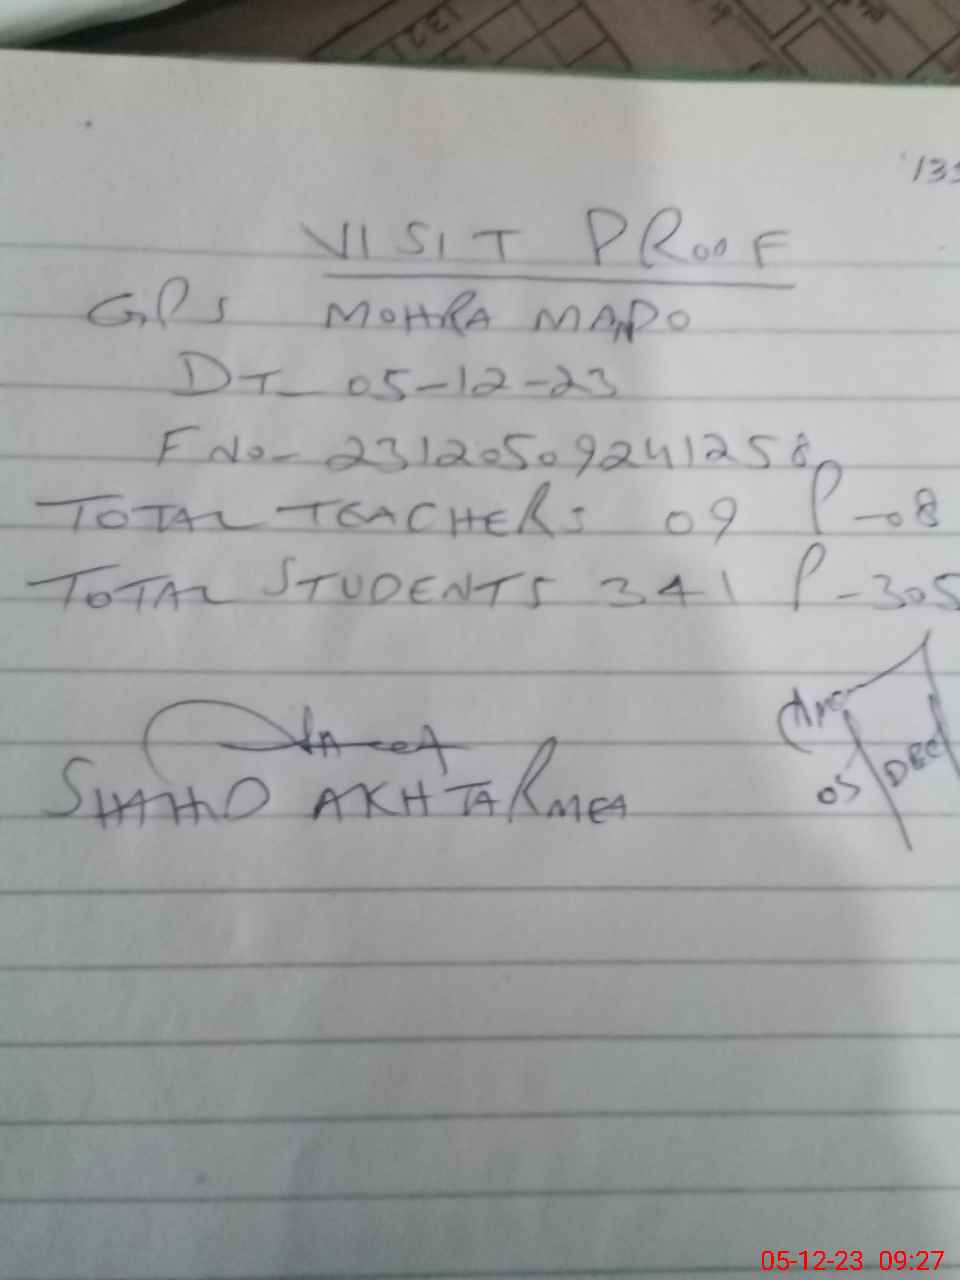 135
VISIT PROOF
GPS MOHRA MAPO
DT_ 05-12-23
F No- 23120509241258
TOTAL TEACHERS 09 P-08
TOTAL STUDENTS 341 P-305
SHAHID AKHTAR MEA
05 DEC
05-12-23 09:27